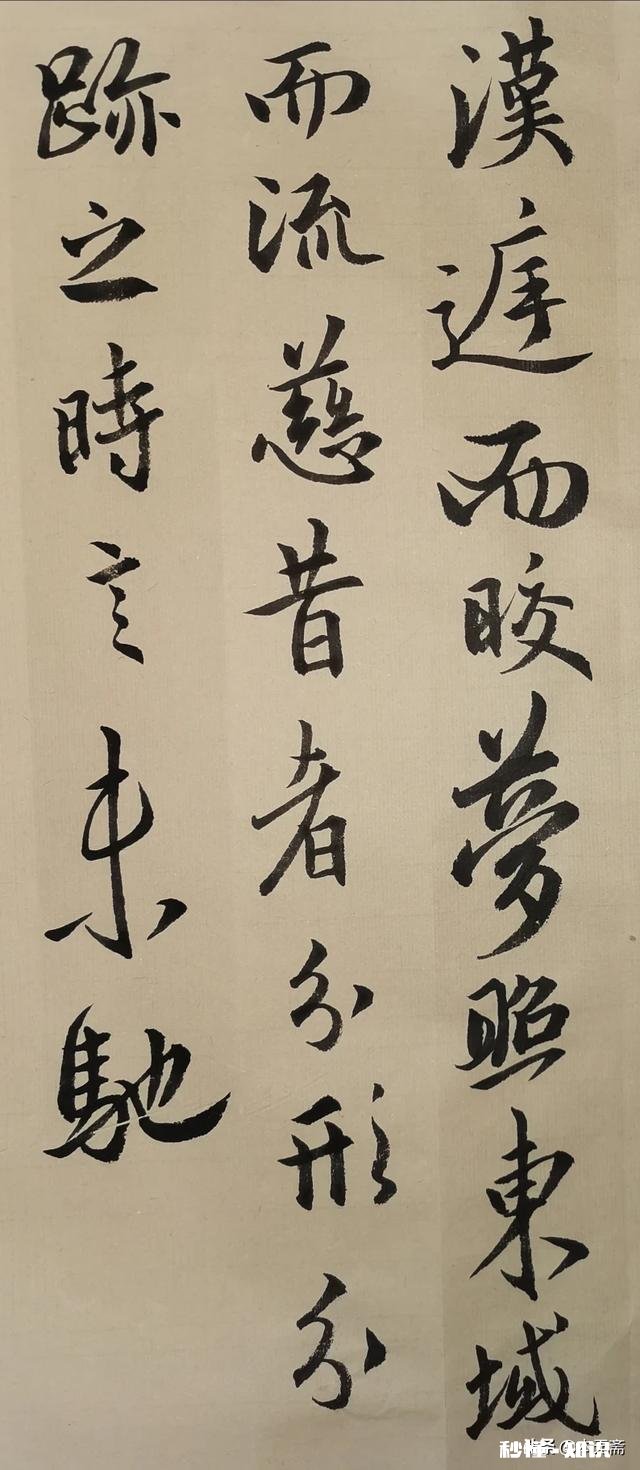 漢庭而皎夢照東域
而流慈昔者分形分
跡之時言未馳
秒懂-知识